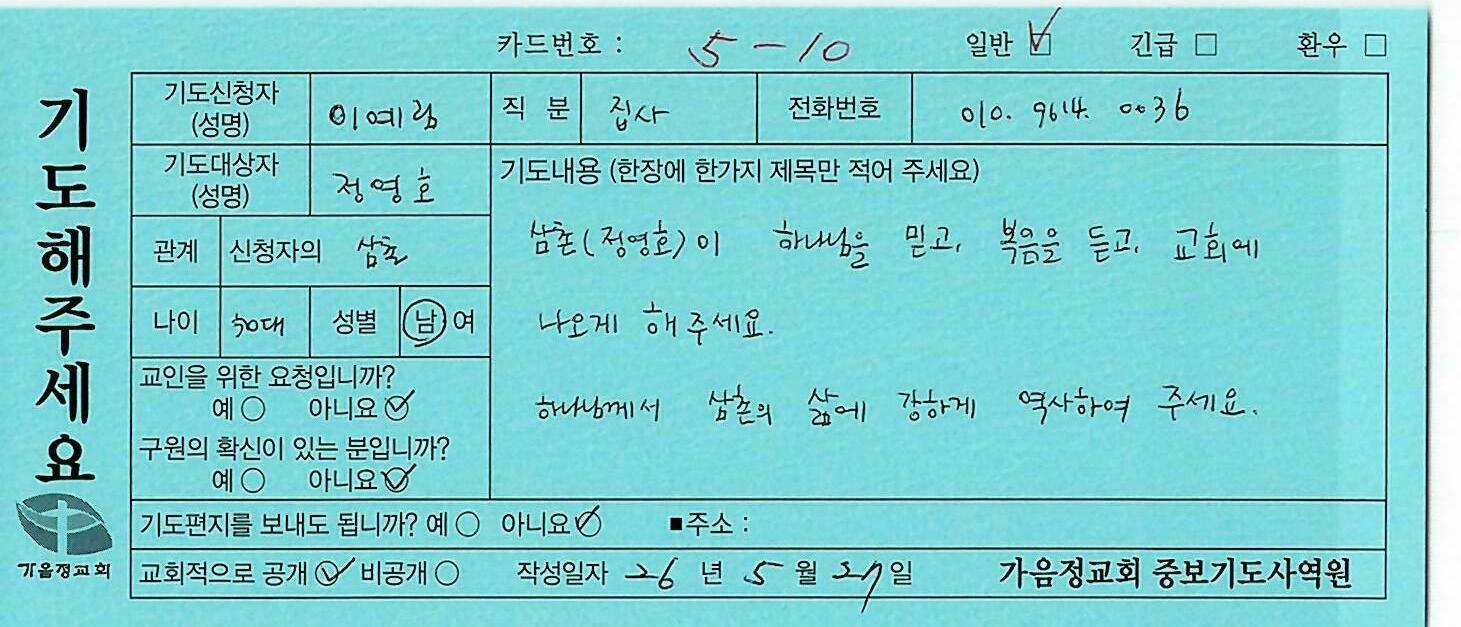 카드번호 : 5-10 일반 ☑ 긴급 □ 환우 □
기도해주세요
기도신청자 (성명) 이예림 직 분 집사 전화번호 010. 9614. 0036
기도대상자 (성명) 정영호
관계 신청자의 삼촌
나이 성별 남 여
교인을 위한 요청입니까?
예 ○ 아니요 ☑
구원의 확신이 있는 분입니까?
예 ○ 아니요 ☑
기도내용 (한장에 한가지 제목만 적어 주세요)
삼촌(정영호)이 하나님을 믿고, 복음을 듣고, 교회에
나오게 해 주세요.
하나님께서 삼촌의 삶에 강하게 역사하여 주세요.
기도편지를 보내도 됩니까? 예 ○ 아니요 ☑ ■주소 :
교회적으로 공개 ☑ 비공개 ○ 작성일자 26 년 5 월 27 일 가음정교회 중보기도사역원
가음정교회